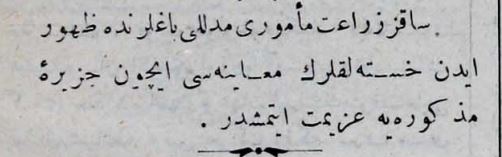 ساقز زراعت مأموری مدللی باغلرنده ظهور
ایدن خسته‌لقلرك معاینه‌سی ایچون جزیرهٔ
مذکوره‌یه عزیمت ایتمشدر .